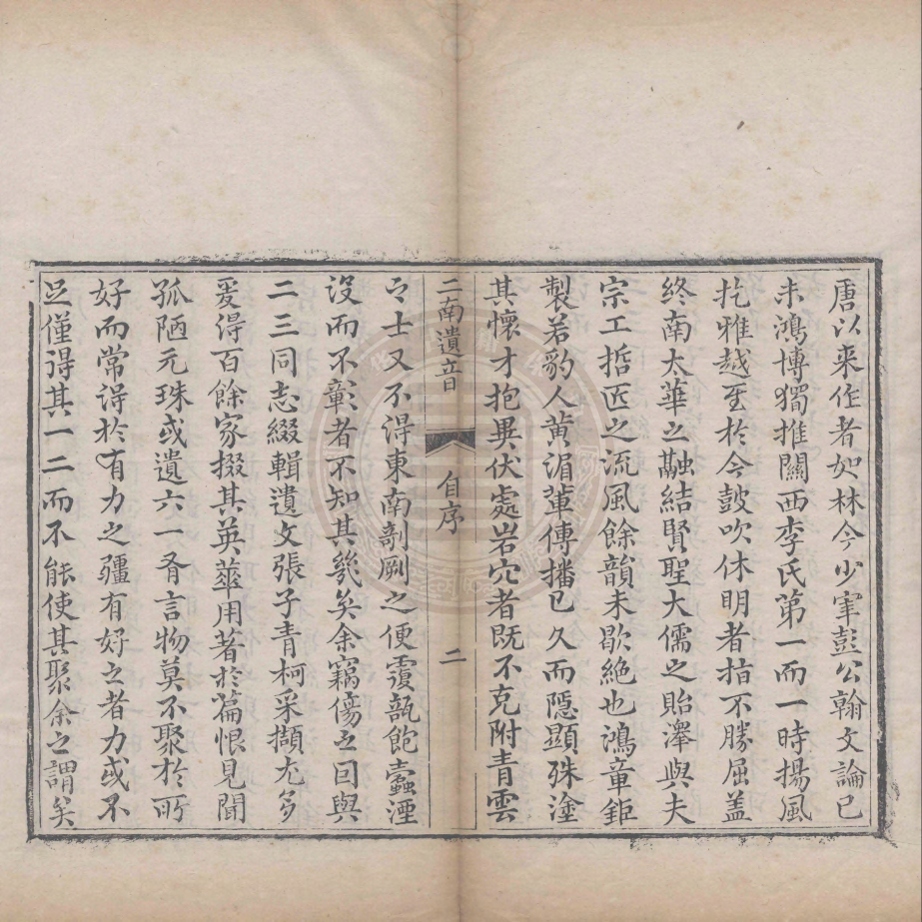 唐以来作者如林今少宰彭公翰文論已
未鴻博獨推關西李氏第一而一時揚風
扢雅越至於今鼓吹休明者指不勝屈盖
終南太華之融結賢聖大儒之貽澤與夫
宗工哲匠之流風餘韻未歇絶也鴻章鉅
製若豹人黄湄軰傳播已久而隱顯殊塗
其懷才抱異伏處岩穴者既不克附青雲
二南遺音
自序
二
之士又不得東南剞劂之便覆瓿飽蠧湮
没而不彰者不知其幾矣余竊傷之囙與
二三同志綴輯遺文張子青柯采擷尤多
爰得百餘家掇其英華用著於篇恨見聞
孤陋元珠或遺六一有言物莫不聚於所
好而常得於有力之彊有好之者力或不
足僅得其一二而不能使其聚余之謂矣